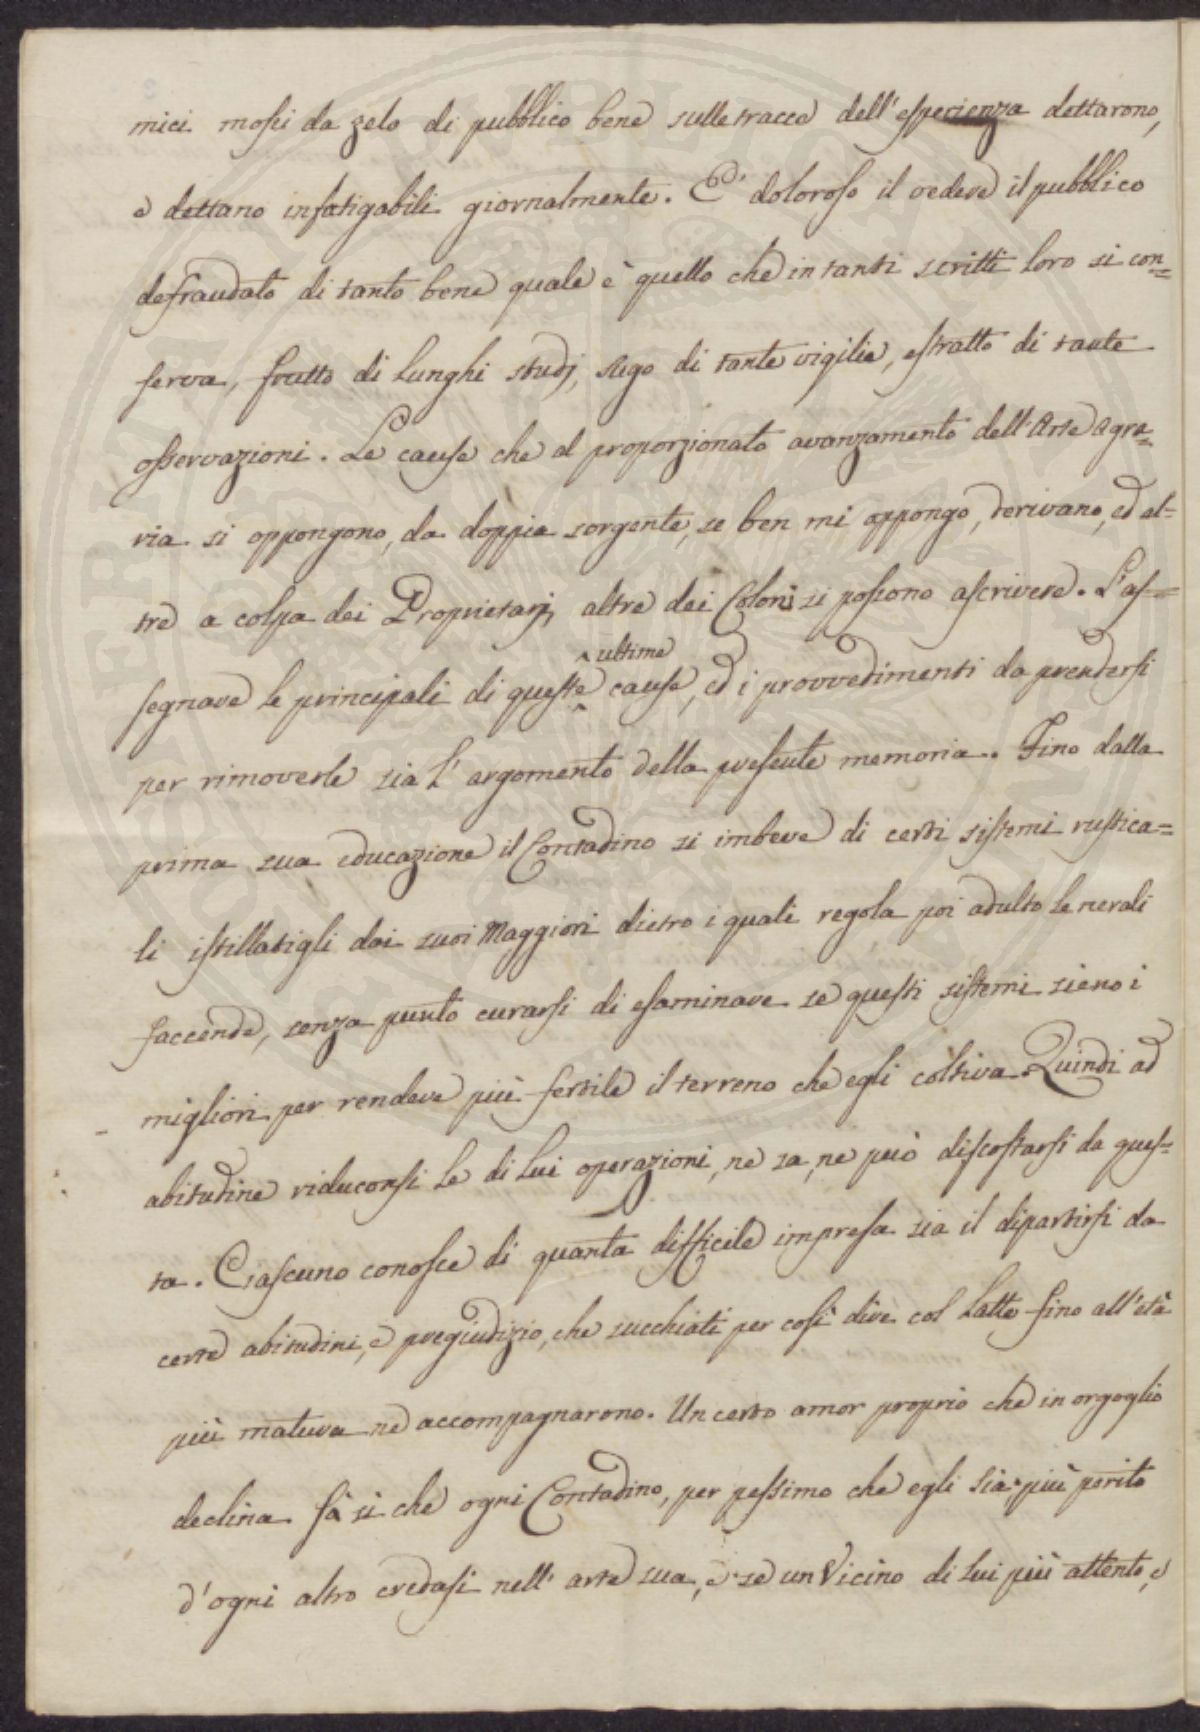 mici mossi da zelo di pubblico bene sulle tracce dell'esperienza dettarono,
e dettano infatigabili giornalmente. E' doloroso il vedere il pubblico
defraudato di tanto bene quale è quello che in tanti scritti loro si con=
serva, frutto di lunghi studj, sugo di tante vigilie, estratto di tante
osservazioni. Le cause che al proporzionato avanzamento dell'Arte Agra=
ria si oppongono, da doppia sorgente, se ben mi appongo, derivano, ed al=
tre a colpa dei Proprietarj, altre dei Coloni si possono ascrivere. L'as=
segnare le principali di queste ultime cause, ed i provvedimenti da prendersi
per rimoverle sia l'argomento della presente memoria. Fino dalla
prima sua educazione il Contadino si imbeve di certi sistemi rustica=
li istillatigli dai suoi Maggiori dietro i quali regola poi adulto le rurali
faccende, senza punto curarsi di esaminare se questi sistemi sieno i
migliori per rendere più fertile il terreno che egli coltiva. Quindi ad
abitudine riduconsi le di lui operazioni, ne sa, ne può discostarsi da ques=
ta. Ciascuno conosce di quanta difficile impresa sia il dipartirsi da
certe abitudini, e pregiudizio, che succhiati per così dire col latte fino all'età
più matura ne accompagnarono. Un certo amor proprio che in orgoglio
declina fà si che ogni Contadino, per pessimo che egli sia, più perito
d'ogni altro credasi nell'arte sua, e se un Vicino di lui più attento, e